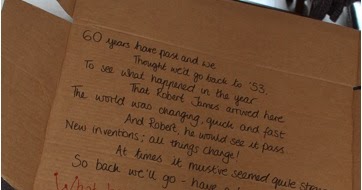 60 years have past and we
Thought we'd go back to '53.
To see what happened in the year
That Robert James arrived here
The world was changing, quick and fast
And Robert, he would see it pass.
New inventions; all things change!
At times it must've seemed quite
So back we'll go - have
What